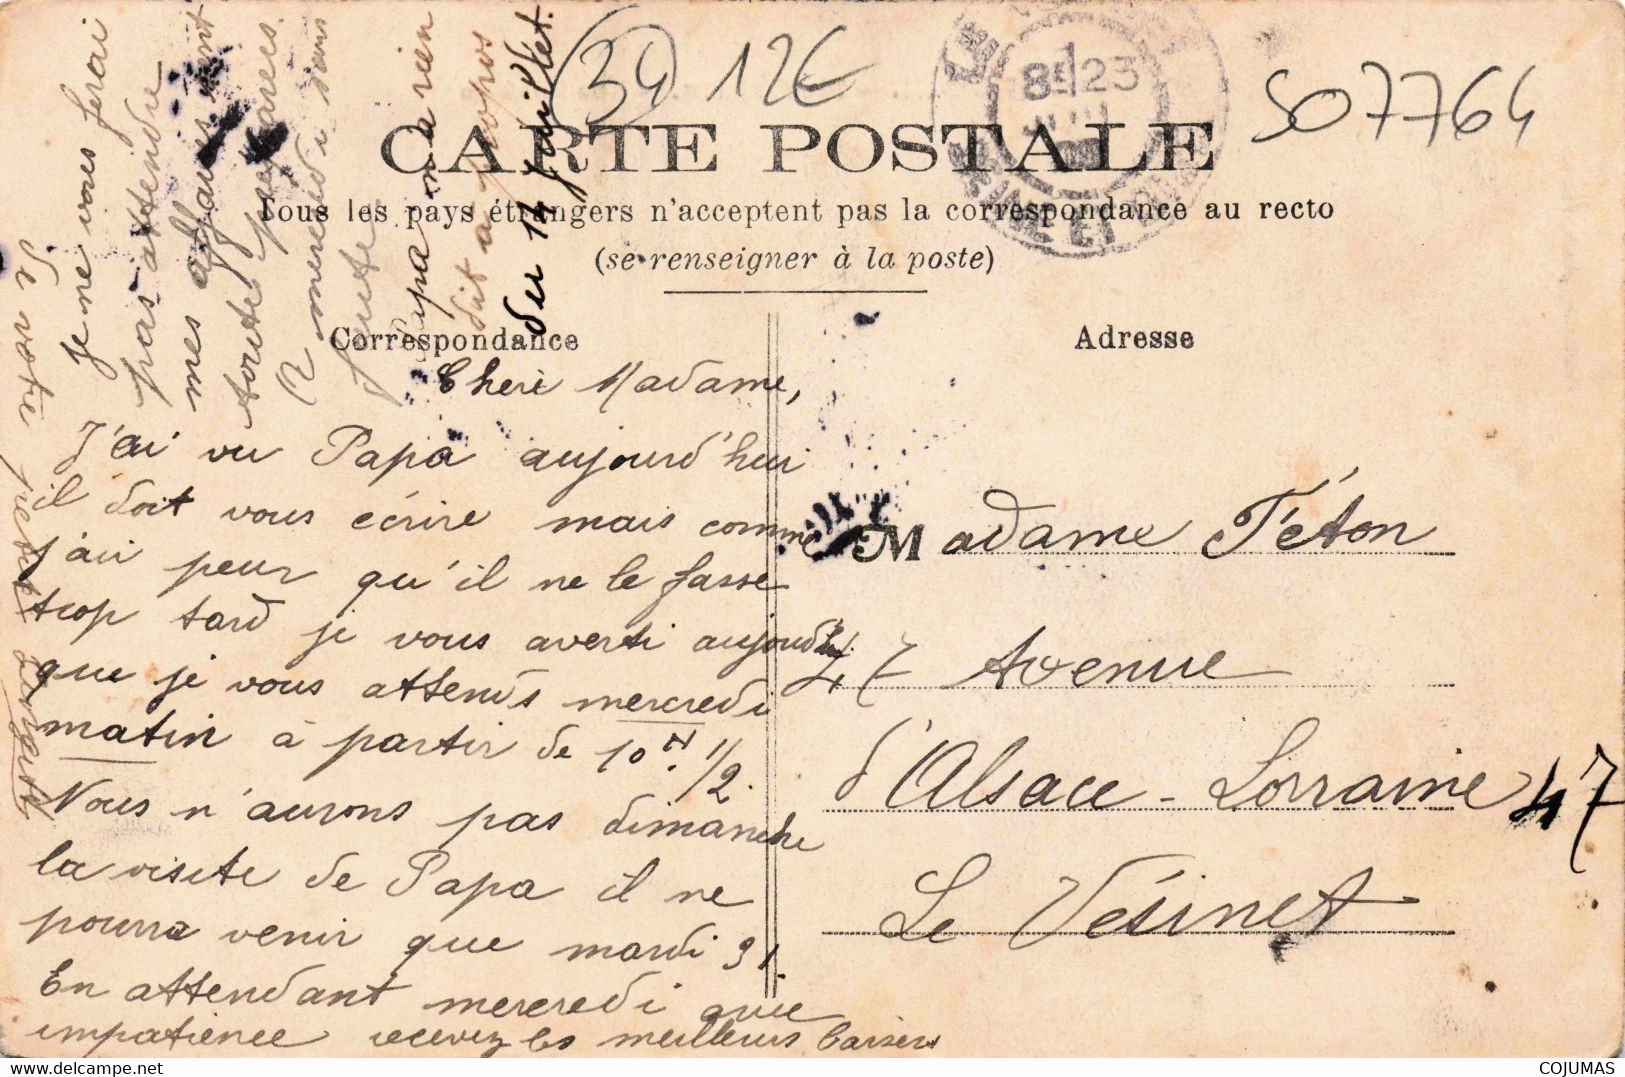 34 12€
507764
8E 23
SEINE ET OISE
CARTE POSTALE
Tous les pays étrangers n'acceptent pas la correspondance au recto
(se renseigner à la poste)
Correspondance
Adresse
Cheri Madame,
J'ai vu Papa aujourd'hui
il doit vous écrire mais comme
j'ai peur qu'il ne le fasse
trop tard je vous averti aujourd'hui
que je vous attends mercredi
matin à partir de 10 H. 1/2.
Nous n'aurons pas dimanche
la visite de Papa il ne
pourra venir que mardi 31.
En attendant mercredi avec
impatience recevez les meilleurs baisers
de votre petit
Je ne vous ferai
pas attendre
mes affaires sont
toutes préparées.
A mercredi sans
faute
Papa ne rien
dit a propos
du 14 Juillet.
Madame Téton
47 Avenue
d'Alsace-Lorraine 47
Le Vésinet
COJUMAS